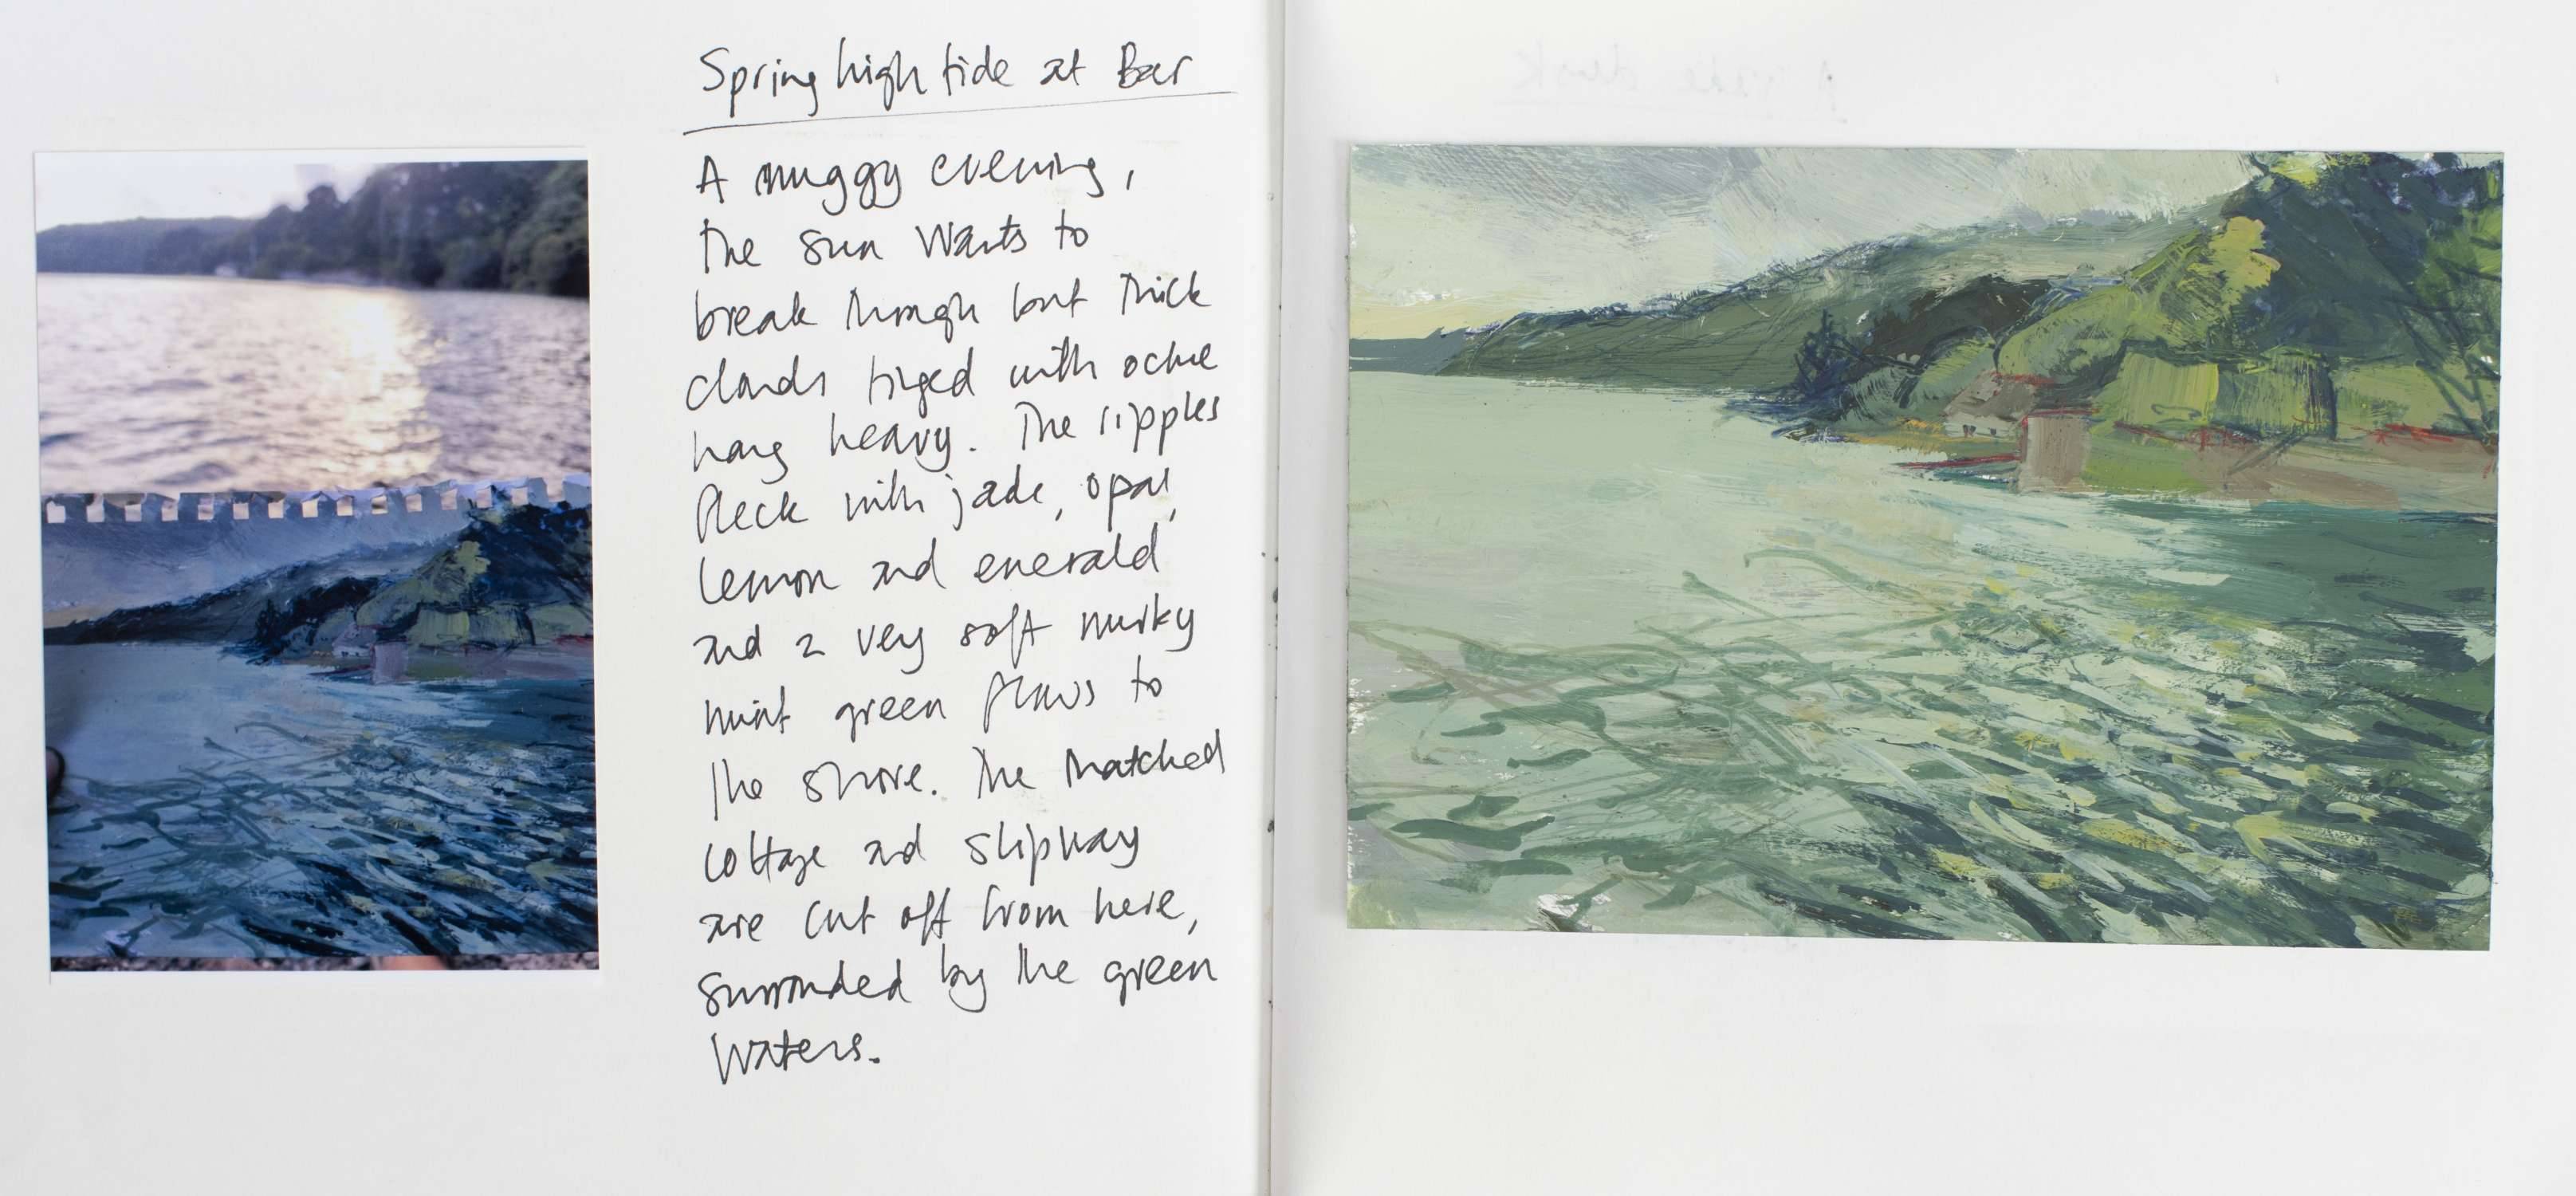 Spring high tide at Bar
A muggy evening,
the sun wants to
break through but thick
clouds tinged with ochre
hang heavy. The ripples
fleck with jade, opal,
lemon and emerald
and a very soft murky
mint green flows to
the shore. The thatched
cottage and slipway
are cut off from here,
surrounded by the green
waters.